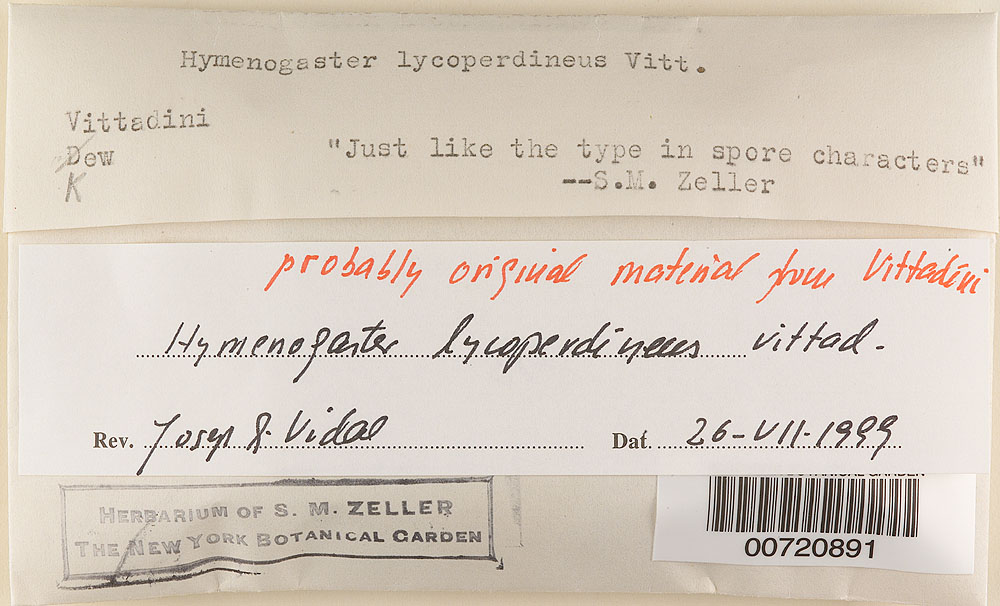 Hymenogaster lycoperdineus Vitt.
Vittadini
Dew
K
"Just like the type in spore characters"
--S.M. Zeller
probably original material from Vittadini
Hymenogaster lycoperdineus vittad.
Rev. Josep G. Vidal Dat. 26-VII-1999
HERBARIUM OF S. M. ZELLER
THE NEW YORK BOTANICAL GARDEN
BOTANICAL GARDEN
00720891